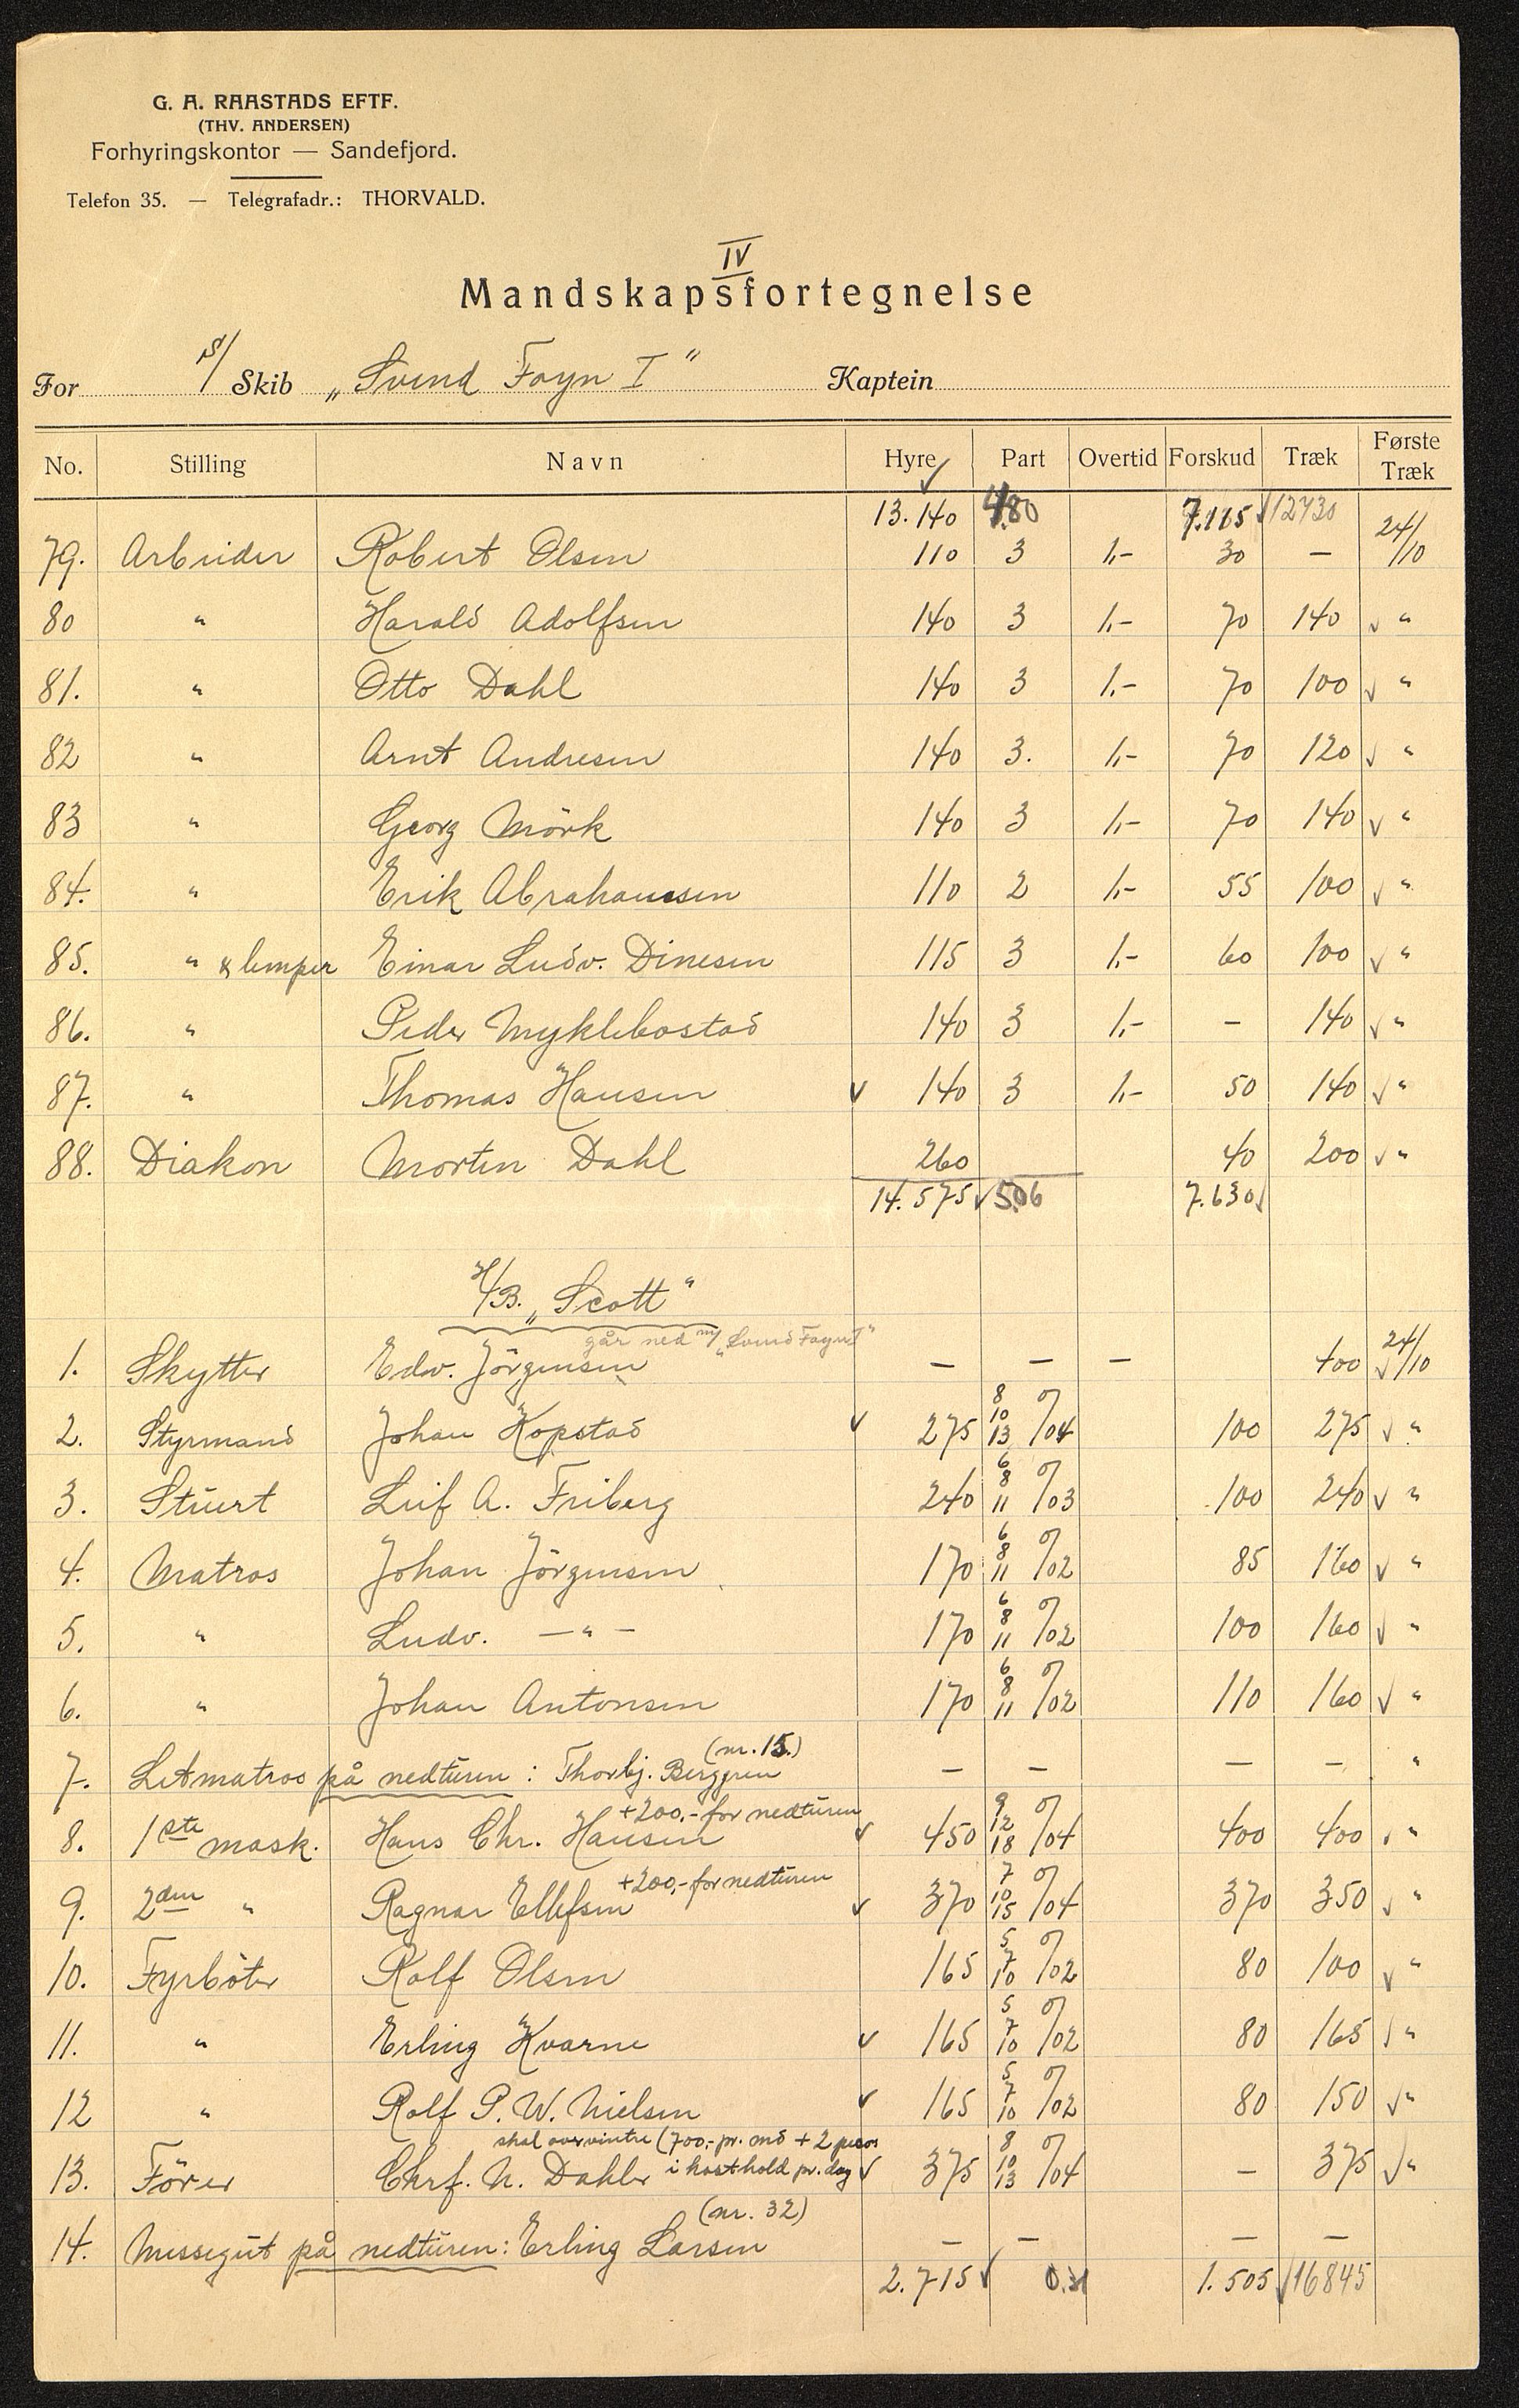 G. A. RAASTADS EFTF.
(THV. ANDERSEN)
Forhyringskontor — Sandefjord.
Telefon 35. — Telegrafadr.: THORVALD.
IV
Mandskapsfortegnelse
For S/ Skib „Svend Foyn I" Kaptein
No. Stilling Navn Hyre Part Overtid Forskud Træk Første Træk
13.140 4.80 7.115 12730
79. Arbeider Robert Olsen 110 3 1,- 30 — 24/10
80 " Harald Adolfsen 140 3 1,- 70 140 "
81. " Otto Dahl 140 3 1,- 70 100 "
82 " Arnt Andresen 140 3. 1,- 70 120 "
83 " Georg Mörk 140 3 1,- 70 140 "
84. " Erik Abrahamsen 110 2 1,- 55 100 "
85. " & lemper Einar Ludv. Dinesen 115 3 1,- 60 100 "
86. " Peder Myklebostad 140 3 1,- — 140 "
87. " Thomas Hansen 140 3 1,- 50 140 "
88. Diakon Morten Dahl 260 40 200 "
14.575 5.06 7.630
H/B. „Scott"
går ned m/ „Svend Foyn I"
1. Skytter Edv. Jörgensen — — — 400 24/10
2. Styrmand Johan Kopstad 275 8 10 13 o/04 100 275 "
3. Stuert Leif A. Friberg 240 6 8 11 o/03 100 240 "
4. Matros Johan Jörgensen 170 6 8 11 o/02 85 160 "
5. " Ludv. —"— 170 6 8 11 o/02 100 160 "
6. " Johan Antonsen 170 6 8 11 o/02 110 160 "
7. Letmatros på nedturen: Thorbj. Berggren (nr. 15.) — — — — "
8. 1ste mask. Hans Chr. Hansen +200,- for nedturen 450 9 12 18 o/04 400 400 "
9. 2den " Ragnar Ellefsen +200,- for nedturen 370 7 10 15 o/04 370 350 "
10. Fyrböter Rolf Olsen 165 5 7 10 o/02 80 100 "
11. " Erling Kvarne 165 5 7 10 o/02 80 165 "
12 " Rolf P. W. Nielsen 165 5 7 10 o/02 80 150 "
skal overvintre (700,- pr. md + 2 pesos
13. Förer Chrf. N. Dahler i kosthold pr. dag 375 8 10 13 o/04 — 375 "
14. Messegut på nedturen: Erling Larsen (nr. 32) — — — —
2.715 0.31 1.505 16845